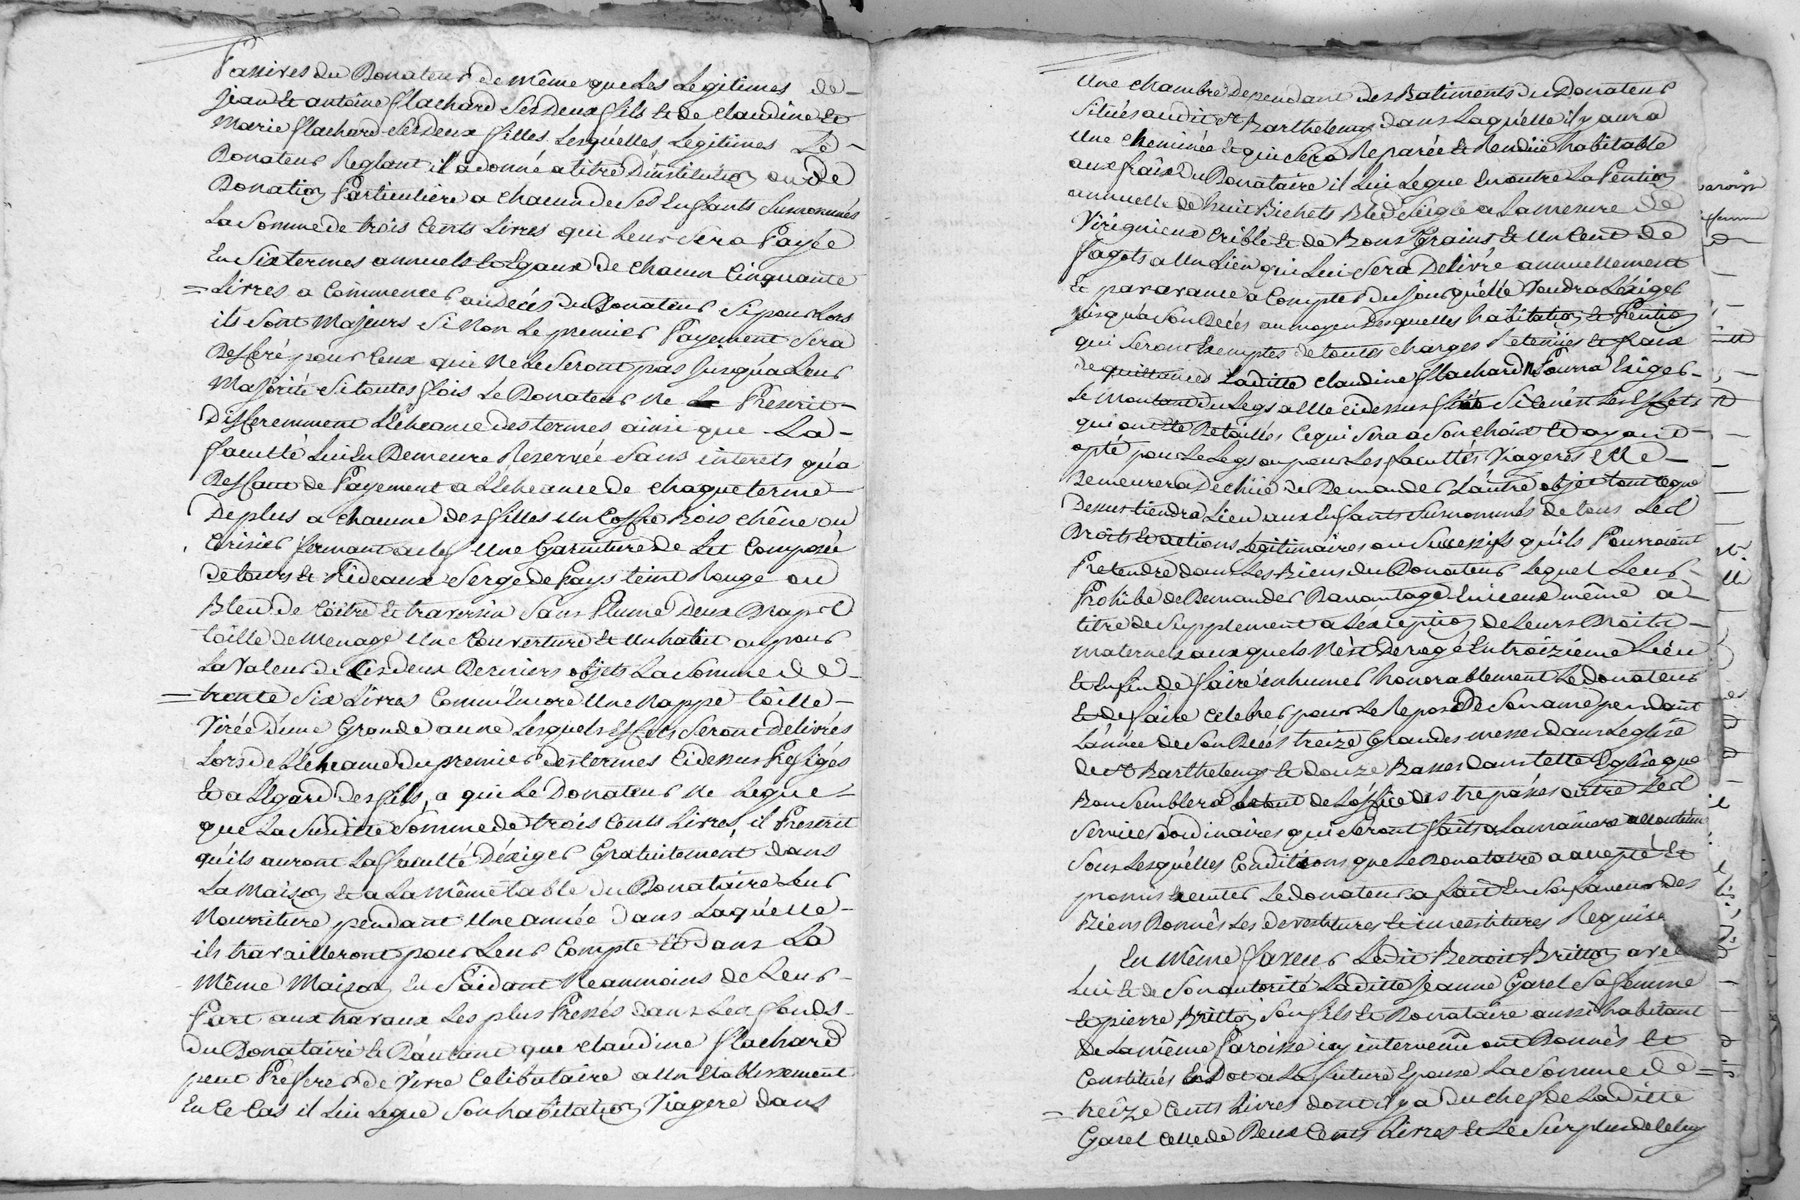 Passives du Donateur de même que Les Legitimes de
Jean Et antoine flachard Ses Deux fils Et de Claudine Et
Marie flachard Ses Deux filles, Lesquelles Legitimes Le
Donateur Reglant il a donné a titre D'institution ou De
Donation Particuliere a chacun de Ses Enfants Surnommés
La Somme de trois Cents Livres qui Leur Sera Payée
En Six termes annuels Et Egaux de chacun Cinquante
Livres a Commencer au Decés du Donateur Si pour Lors
ils Sont Majeurs Si Non Le premier Payement Sera
Defferé pour Ceux qui Ne Le Seront pas Jusqu'a Leur
Majorité Si toutes fois Le Donateur Ne Prescrit
Differemment L'Echeance des termes ainsi que La
faculté Lui En Demeure Reservée Sans interets qu'a
Deffaut de Payement a L'Echeance de chaque terme
De plus a chacune des filles Un Coffre Bois chêne ou
Cerisier fermant a clef Une Garniture de Lit Composée
de tours Et Rideaux Serge de Pays teint Rouge ou
Bleu de Coitre Et traversin Sans Plume Deux Draps
toille de Menage Une Couverture Et Un habit ou pour
La Valeur de Ces deux Derniers objets La Somme de
trente Six Livres Comm'Encore Une Nappe toille
Virée d'une Grande aune Lesquels Effets Seront Delivrés
Lors de L'Echeance du premier des termes Cidessus Prefigés
Et a L'Egard des fils, a qui Le Donateur Ne Legue
que La Susditte Somme de trois Cents Livres, il Prescrit
qu'ils auront La faculté D'exiger Gratuitement dans
La Maison Et a La Même table du Donataire Leur
Nourriture pendant Une année Dans Laquelle
ils travailleront pour Leur Compte Et dans La
Même Maison En S'aidant Neanmoins de Leur
Part aux travaux Les plus Pressés dans Les fonds
du Donataire Et D'autant que Claudine flachard
peut Preferer de Vivre Celibataire a Un Etablissement
En Ce Cas il Lui Legue Son habitation Viagere dans
Une chambre Dependant des Batiments du Donateur
Situés audit St Barthelemy dans Laquelle il y aura
Une cheminée Et qui Sera Reparée Et Rendüe habitable
aux fraix du Donataire il Lui Legue En outre La Pention
annuelle de huit Bichets Bled Seigle a La mesure de
Virignieux Crible Et de Bons Grains Et Un Cent de
fagots a Un Lien qui Lui Sera Delivré annuellement
Et par avance a Compter du jour qu'elle Voudra L'exiger
jusqu'a Son Decés au moyen Desquelles habitation Et Pention
qui Seront Exemptes de toutes charges Retenües Et fraix
de quittances Laditte Claudine flachard Ne Pourra Exiger
Le Montant du Legs a Elle cidessus fait Si Ce n'est Les Effets
qui ont Eté Detaillés Ce qui Sera a Son choix Et ayant
opté pour Le Legs ou pour Les facultés Viageres Elle
Demeurera Dechüe de Demander L'autre objet tout Legue
Dessus tiendra Lieu aux Enfants Surnommés de tous Les
Droits Et actions Legitimaires ou Successifs qu'ils Pourroient
Pretendre dans Les Biens du Donateur Lequel Leur
Prohibe de Demander Davantage En iceux même a
titre de Supplement a L'exception de Leurs Droits
maternels auxquels N'est Derogé En troizieme Lieu
Et Enfin de faire inhumer honorablement Le donateur
Et de faire Celebrer pour Le Repos De Son ame pendant
L'année de Son Decés treize Grandes messes dans L'eglise
de St Barthelemy Et douze Basses dans tette Eglise que
Bon Semblera Le tout de L'office des trepassés outre Les
Services ordinaires qui Seront faits a La maniere accoutumée
Sous Lesquelles Conditions que Le Donataire a accepté Et
promis executer Le donateur a fait En Sa faveur des
Biens Donnés Les devestitures Et investitures Requises
En Même faveur Ledit Benoit Britton avec
Lui Et de Son autorité Laditte Jeanne Garel Sa femme
Et pierre Britton Son fils Et Donataire aussi habitant
de La même Paroisse icy intervenu ont Donnés Et
Constitués En Dot a La future Epouse La Somme de
treize Cents Livres dont il y a Du chef de Laditte
Garel Celle de Deux Cents Livres Et Le Surplus de Celuy